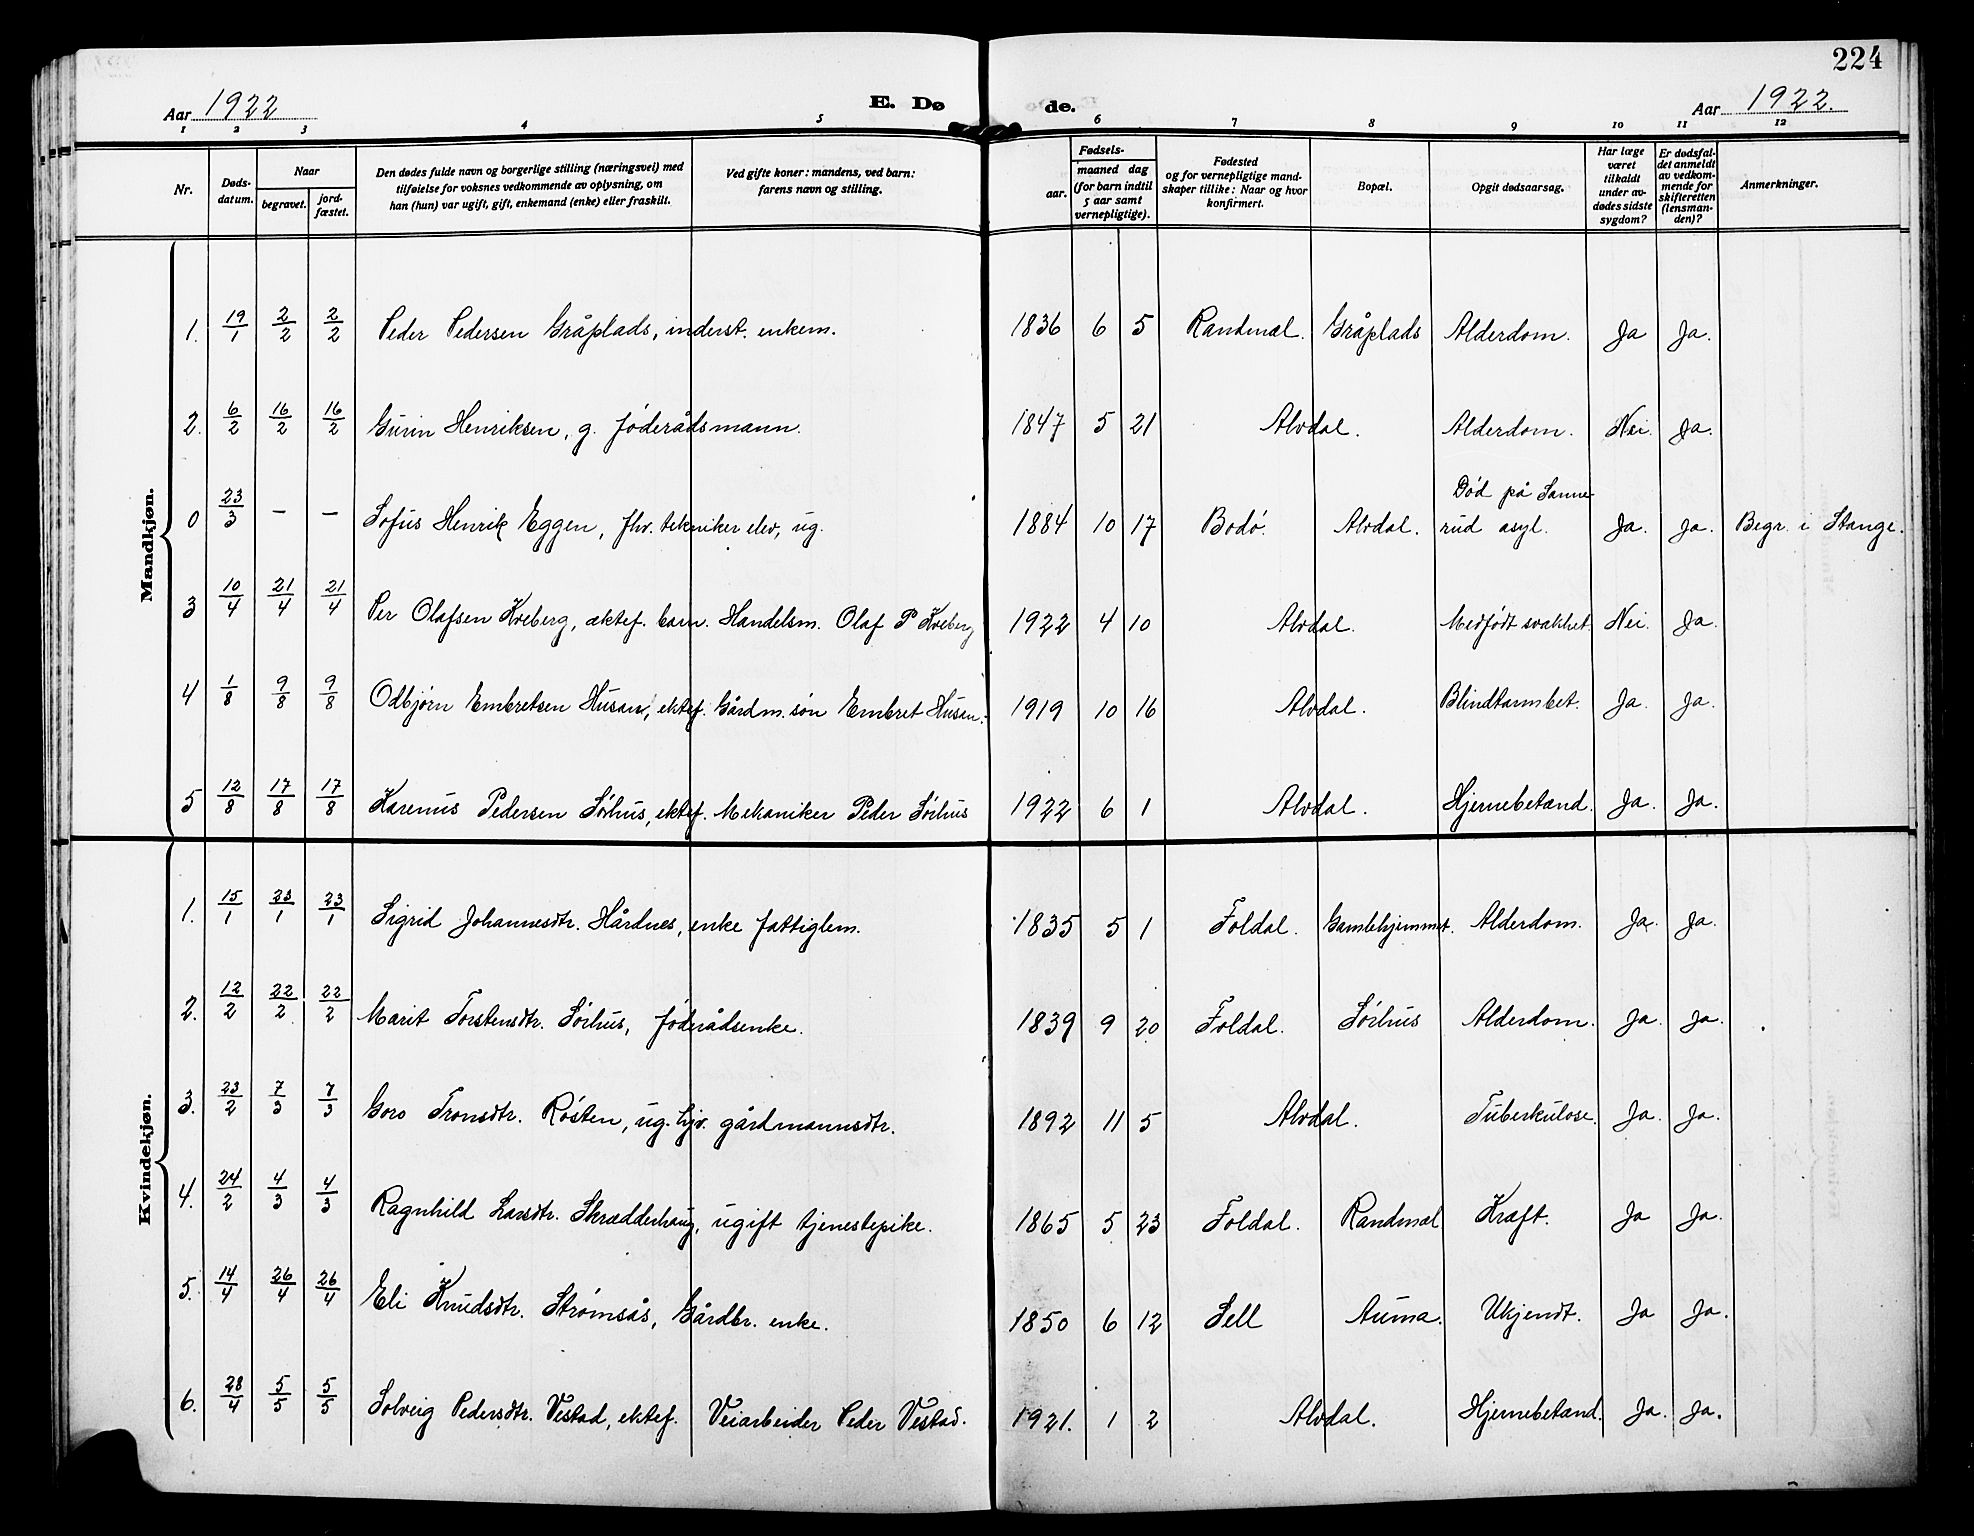 224
Aar 1922 E. Dø de. Aar 1922.
1 2 3 4 5 6 7 8 9 10 11 12
Nr.
Døds-
datum.
Naar
begravet.
jord-
fæstet.
Den dødes fulde navn og borgerlige stilling (næringsvei) med
tilføielse for voksnes vedkommende av oplysning, om
han (hun) var ugift, gift, enkemand (enke) eller fraskilt.
Ved gifte koner: mandens, ved barn:
farens navn og stilling.
Fødsels-
aar.
maaned dag
(for barn indtil
5 aar samt
vernepligtige).
Fødested
og for vernepligtige mand-
skaper tillike: Naar og hvor
konfirmert.
Bopæl.
Opgit dødsaarsag.
Har læge
været
tilkaldt
under av-
dødes sidste
sygdom?
Er dødsfal-
det anmeldt
av vedkom-
mende for
skifteretten
(lensman-
den)?
Anmerkninger.
Mandkjøn.
1. 19/1 2/2 2/2 Peder Pedersen Gråplads, inderst. enkem. 1836 6 5 Randmæl. Gråplads Alderdom. Ja Ja.
2. 6/2 16/2 16/2 Gurin Henriksen, g. føderådsmann. 1847 5 21 Alvdal. Alderdom. Nei. Ja.
0 23/3 - - Sofus Henrik Eggen, fhv. tekniker elev, ug. 1884 10 17 Bodø. Alvdal. Død på Sanne-
rud asyl. Ja. Ja. Begr. i Stange.
3 10/4 21/4 21/4 Per Olafsen Kveberg, æktef. barn. Handelsm. Olaf P Kveberg 1922 4 10 Alvdal. Medfødt svakhet. Nei. Ja.
4 1/8 9/8 9/8 Odbjørn Embretsen Husan, ektef. Gårdm. søn Embret Husan. 1919 10 16 Alvdal. Blindtarmbet. Ja. Ja.
5 12/8 17/8 17/8 Karenus Pedersen Sørhus, ektef. Mekaniker Peder Sørhus 1922 6 1 Alvdal. Hjernebetænd. Ja. Ja.
Kvindekjøn.
1. 15/1 23/1 23/1 Sigrid Johannesdtr. Hårdnes, enke fattiglem. 1835 5 1 Foldal. Gamlehjemmet. Alderdom. Ja. Ja.
2. 12/2 22/2 22/2 Marit Torstensdtr. Sørhus, føderådsenke. 1839 9 20 Foldal. Sørhus Alderdom. Ja. Ja.
3. 23/2 7/3 7/3 Goro Tronsdtr. Røsten, ug. hjv. gårdmannsdtr. 1892 11 5 Alvdal. Tuberkulose. Ja. Ja.
4. 24/2 4/3 4/3 Ragnhild Larsdtr. Skrædderhaug, ugift tjenestepike. 1865 5 23 Foldal. Randmæl Kræft. Ja Ja.
5. 14/4 26/4 26/4 Eli Knudsdtr. Strømsås, Gårdbr. enke. 1850 6 12 Sell Auma. Ukjendt. Ja Ja.
6. 28/4 5/5 5/5 Solveig Pedersdtr. Vestad, ektef. Veiarbeider Peder Vestad. 1921. 1 2 Alvdal. Hjernebetænd. Ja. Ja.